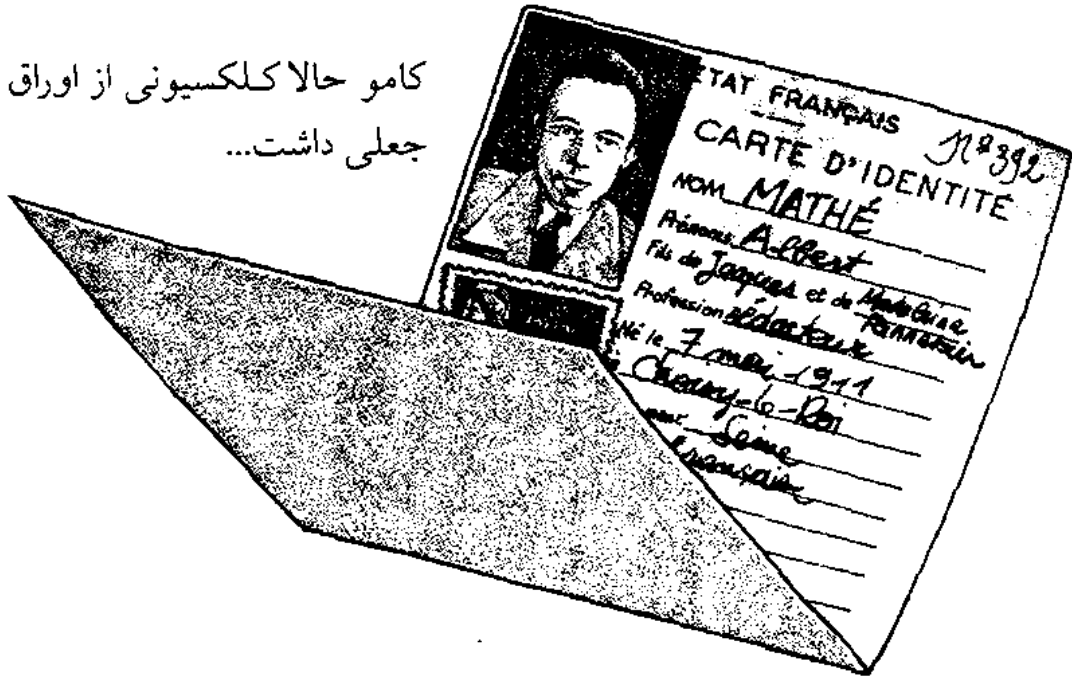 کامو حالا کلکسیونی از اوراق
جعلی داشت...
ÉTAT FRANÇAIS
Nº 392
CARTE D'IDENTITÉ
NOM MATHÉ
Prénoms Albert
Fils de Jacques et de Madeleine
Profession Rédacteur
Né le 7 mai 1911
Choisy-le-Roi
Seine
Française